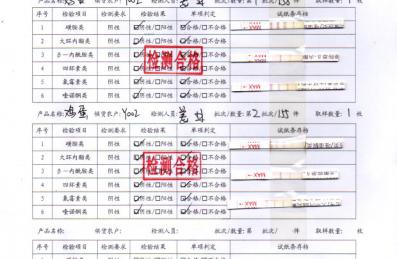 产品名称: 鸡蛋 供货农户: Y002 检测人员: 批次/数量: 第 批次/155 件 取样数量: 1 枚
序号 检验项目 检测要求 检验结果 单项判定 试纸条存档
1 磺胺类 阴性 ☑阴性/☐阳性 ☑合格/☐不合格
2 大环内酯类 阴性 ☑阴性/☐阳性 ☑合格/☐不合格
3 β-内酰胺类 阴性 ☑阴性/☐阳性 ☑合格/☐不合格
4 四环素类 阴性 ☑阴性/☐阳性 ☑合格/☐不合格
5 氟霉素类 阴性 ☑阴性/☐阳性 ☑合格/☐不合格
6 喹诺酮类 阴性 ☑阴性/☐阳性 ☑合格/☐不合格
检测合格
产品名称: 鸡蛋 供货农户: Y002 检测人员: 批次/数量: 第 2 批次/155 件 取样数量: 1 枚
序号 检验项目 检测要求 检验结果 单项判定 试纸条存档
1 磺胺类 阴性 ☑阴性/☐阳性 ☑合格/☐不合格
2 大环内酯类 阴性 ☑阴性/☐阳性 ☑合格/☐不合格
3 β-内酰胺类 阴性 ☑阴性/☐阳性 ☑合格/☐不合格
4 四环素类 阴性 ☑阴性/☐阳性 ☑合格/☐不合格
5 氟霉素类 阴性 ☑阴性/☐阳性 ☑合格/☐不合格
6 喹诺酮类 阴性 ☑阴性/☐阳性 ☑合格/☐不合格
检测合格
产品名称: 供货农户: 检测人员: 批次/数量: 第 批次/ 件 取样数量: 枚
序号 检验项目 检测要求 检验结果 单项判定 试纸条存档